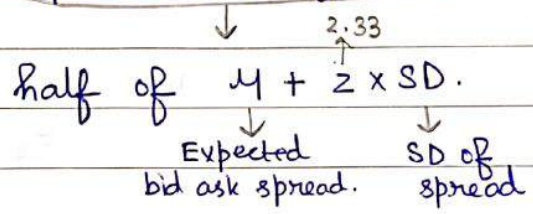 2.33
half of μ + z × SD.
Expected SD of
bid ask spread. spread